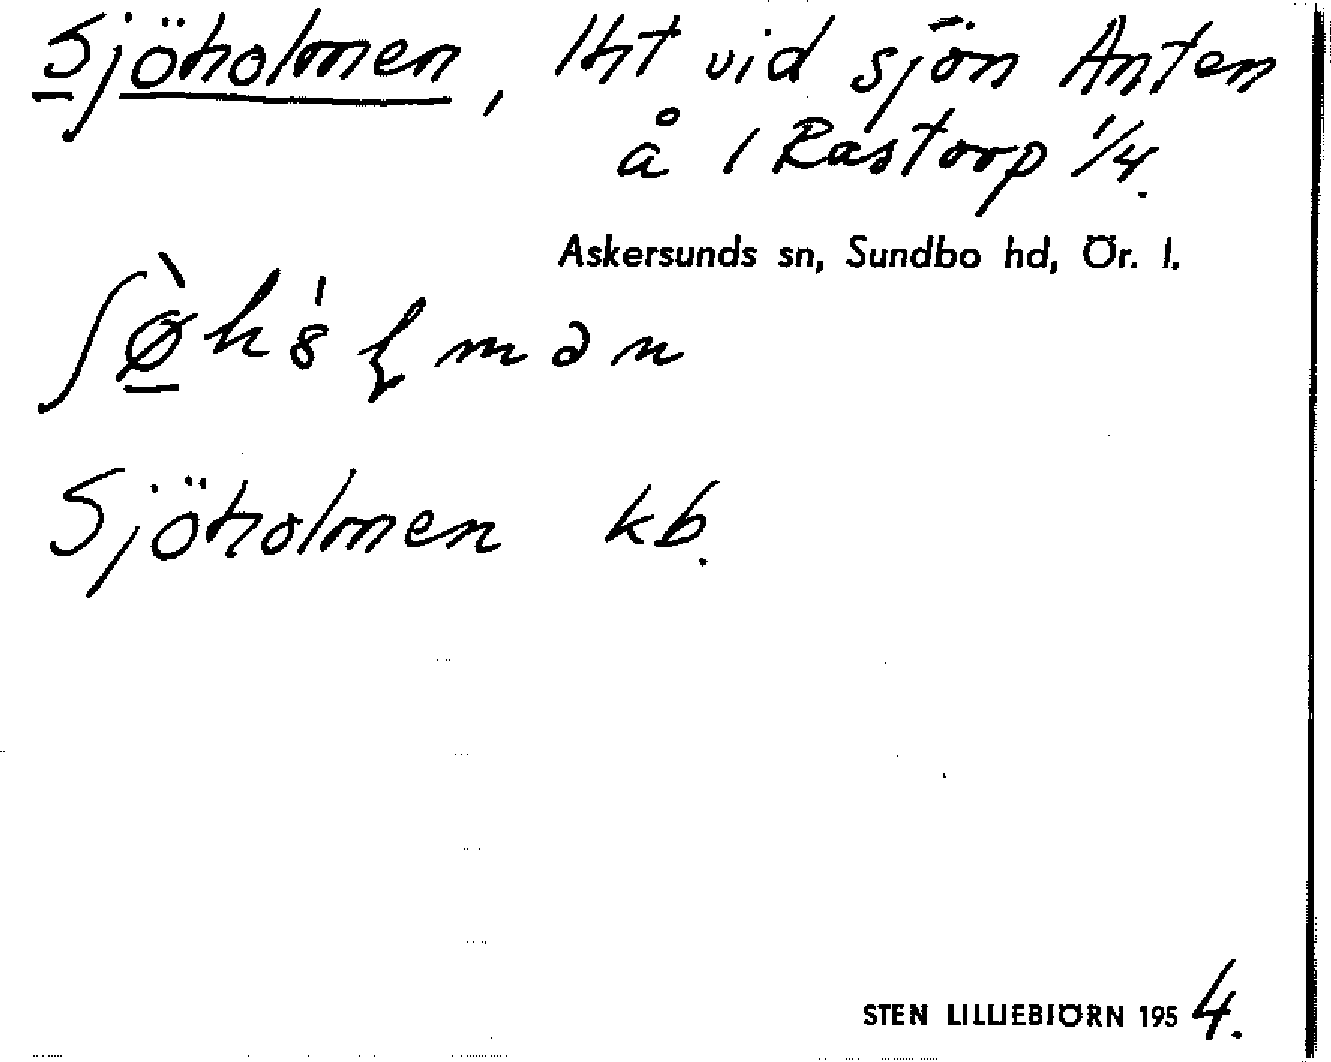 Sjöholmen, lht vid sjön Anten
å 1 Rastorp 1/4.
Askersunds sn, Sundbo hd, Ör. l.
Sjöholmen kb.
STEN LILLIEBIÖRN 1954.